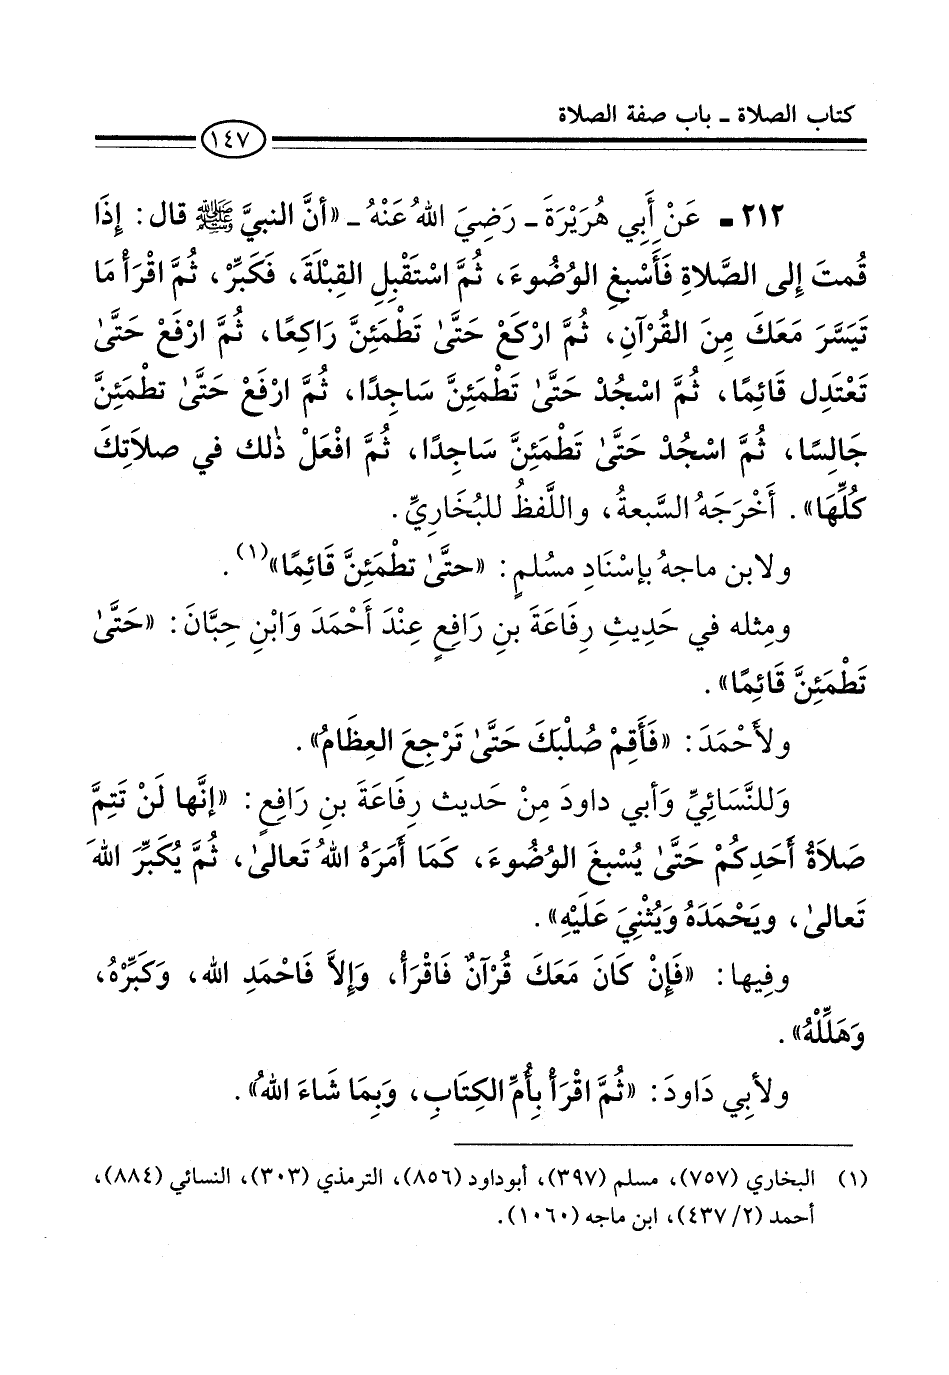 كتاب الصلاة ـ باب صفة الصلاة
١٤٧
٢١٢ ـ عَنْ أَبِي هُرَيْرَةَ ـ رَضِيَ اللهُ عَنْهُ ـ «أنَّ النبيَّ ﷺ قال: إِذَا
قُمتَ إِلى الصَّلاةِ فَأَسْبِغِ الوُضُوءَ، ثُمَّ اسْتَقْبِلِ القِبْلَةَ، فَكَبِّرْ، ثُمَّ اقْرَأْ مَا
تَيَسَّرَ مَعَكَ مِنَ القُرْآنِ، ثُمَّ ارْكَعْ حَتَّىٰ تَطْمَئِنَّ رَاكِعًا، ثُمَّ ارْفَعْ حَتَّىٰ
تَعْتَدِل قَائِمًا، ثُمَّ اسْجُدْ حَتَّىٰ تَطْمَئِنَّ سَاجِدًا، ثُمَّ ارْفَعْ حَتَّىٰ تطْمَئِنَّ
جَالِسًا، ثُمَّ اسْجُدْ حَتَّىٰ تَطْمَئِنَّ سَاجِدًا، ثُمَّ افْعَلْ ذٰلك في صلاَتِكَ
كُلِّهَا». أَخْرَجَهُ السَّبعةُ، واللَّفظُ للبُخَارِيِّ.
ولابن ماجهُ بإسْنَادِ مسْلمٍ: «حتَّىٰ تطْمَئِنَّ قَائِمًا»(١).
ومِثله في حَدِيثِ رِفَاعَةَ بن رَافِعٍ عِنْدَ أَحْمَدَ وَابْنِ حِبَّانَ: «حَتَّىٰ
تَطْمَئِنَّ قَائِمًا».
ولأَحْمَدَ: «فَأَقِمْ صُلْبَكَ حَتَّىٰ تَرْجِعَ العِظَامُ».
وَللنَّسَائِيِّ وَأبي داودَ مِنْ حَديث رِفَاعَةَ بنِ رَافِعٍ: «إنَّها لَنْ تَتِمَّ
صَلاَةُ أَحَدِكُمْ حَتَّىٰ يُسْبِغَ الوُضُوءَ، كَمَا أَمَرَهُ اللهُ تَعالىٰ، ثُمَّ يُكَبِّرَ اللهَ
تَعالىٰ، ويَحْمَدَهُ وَيُثْنِيَ عَلَيْهِ».
وفِيها: «فَإِنْ كَانَ مَعَكَ قُرْآنٌ فَاقْرَأْ، وَإِلاَّ فَاحْمَدِ الله، وَكَبِّرْهُ،
وَهَلِّلْهُ».
ولأبي دَاودَ: «ثُمَّ اقْرَأْ بِأُمِّ الكِتَابِ، وَبِمَا شَاءَ اللهُ».
(١) البخاري (٧٥٧)، مسلم (٣٩٧)، أبوداود (٨٥٦)، الترمذي (٣٠٣)، النسائي (٨٨٤)،
أحمد (٢/ ٤٣٧)، ابن ماجه (١٠٦٠).